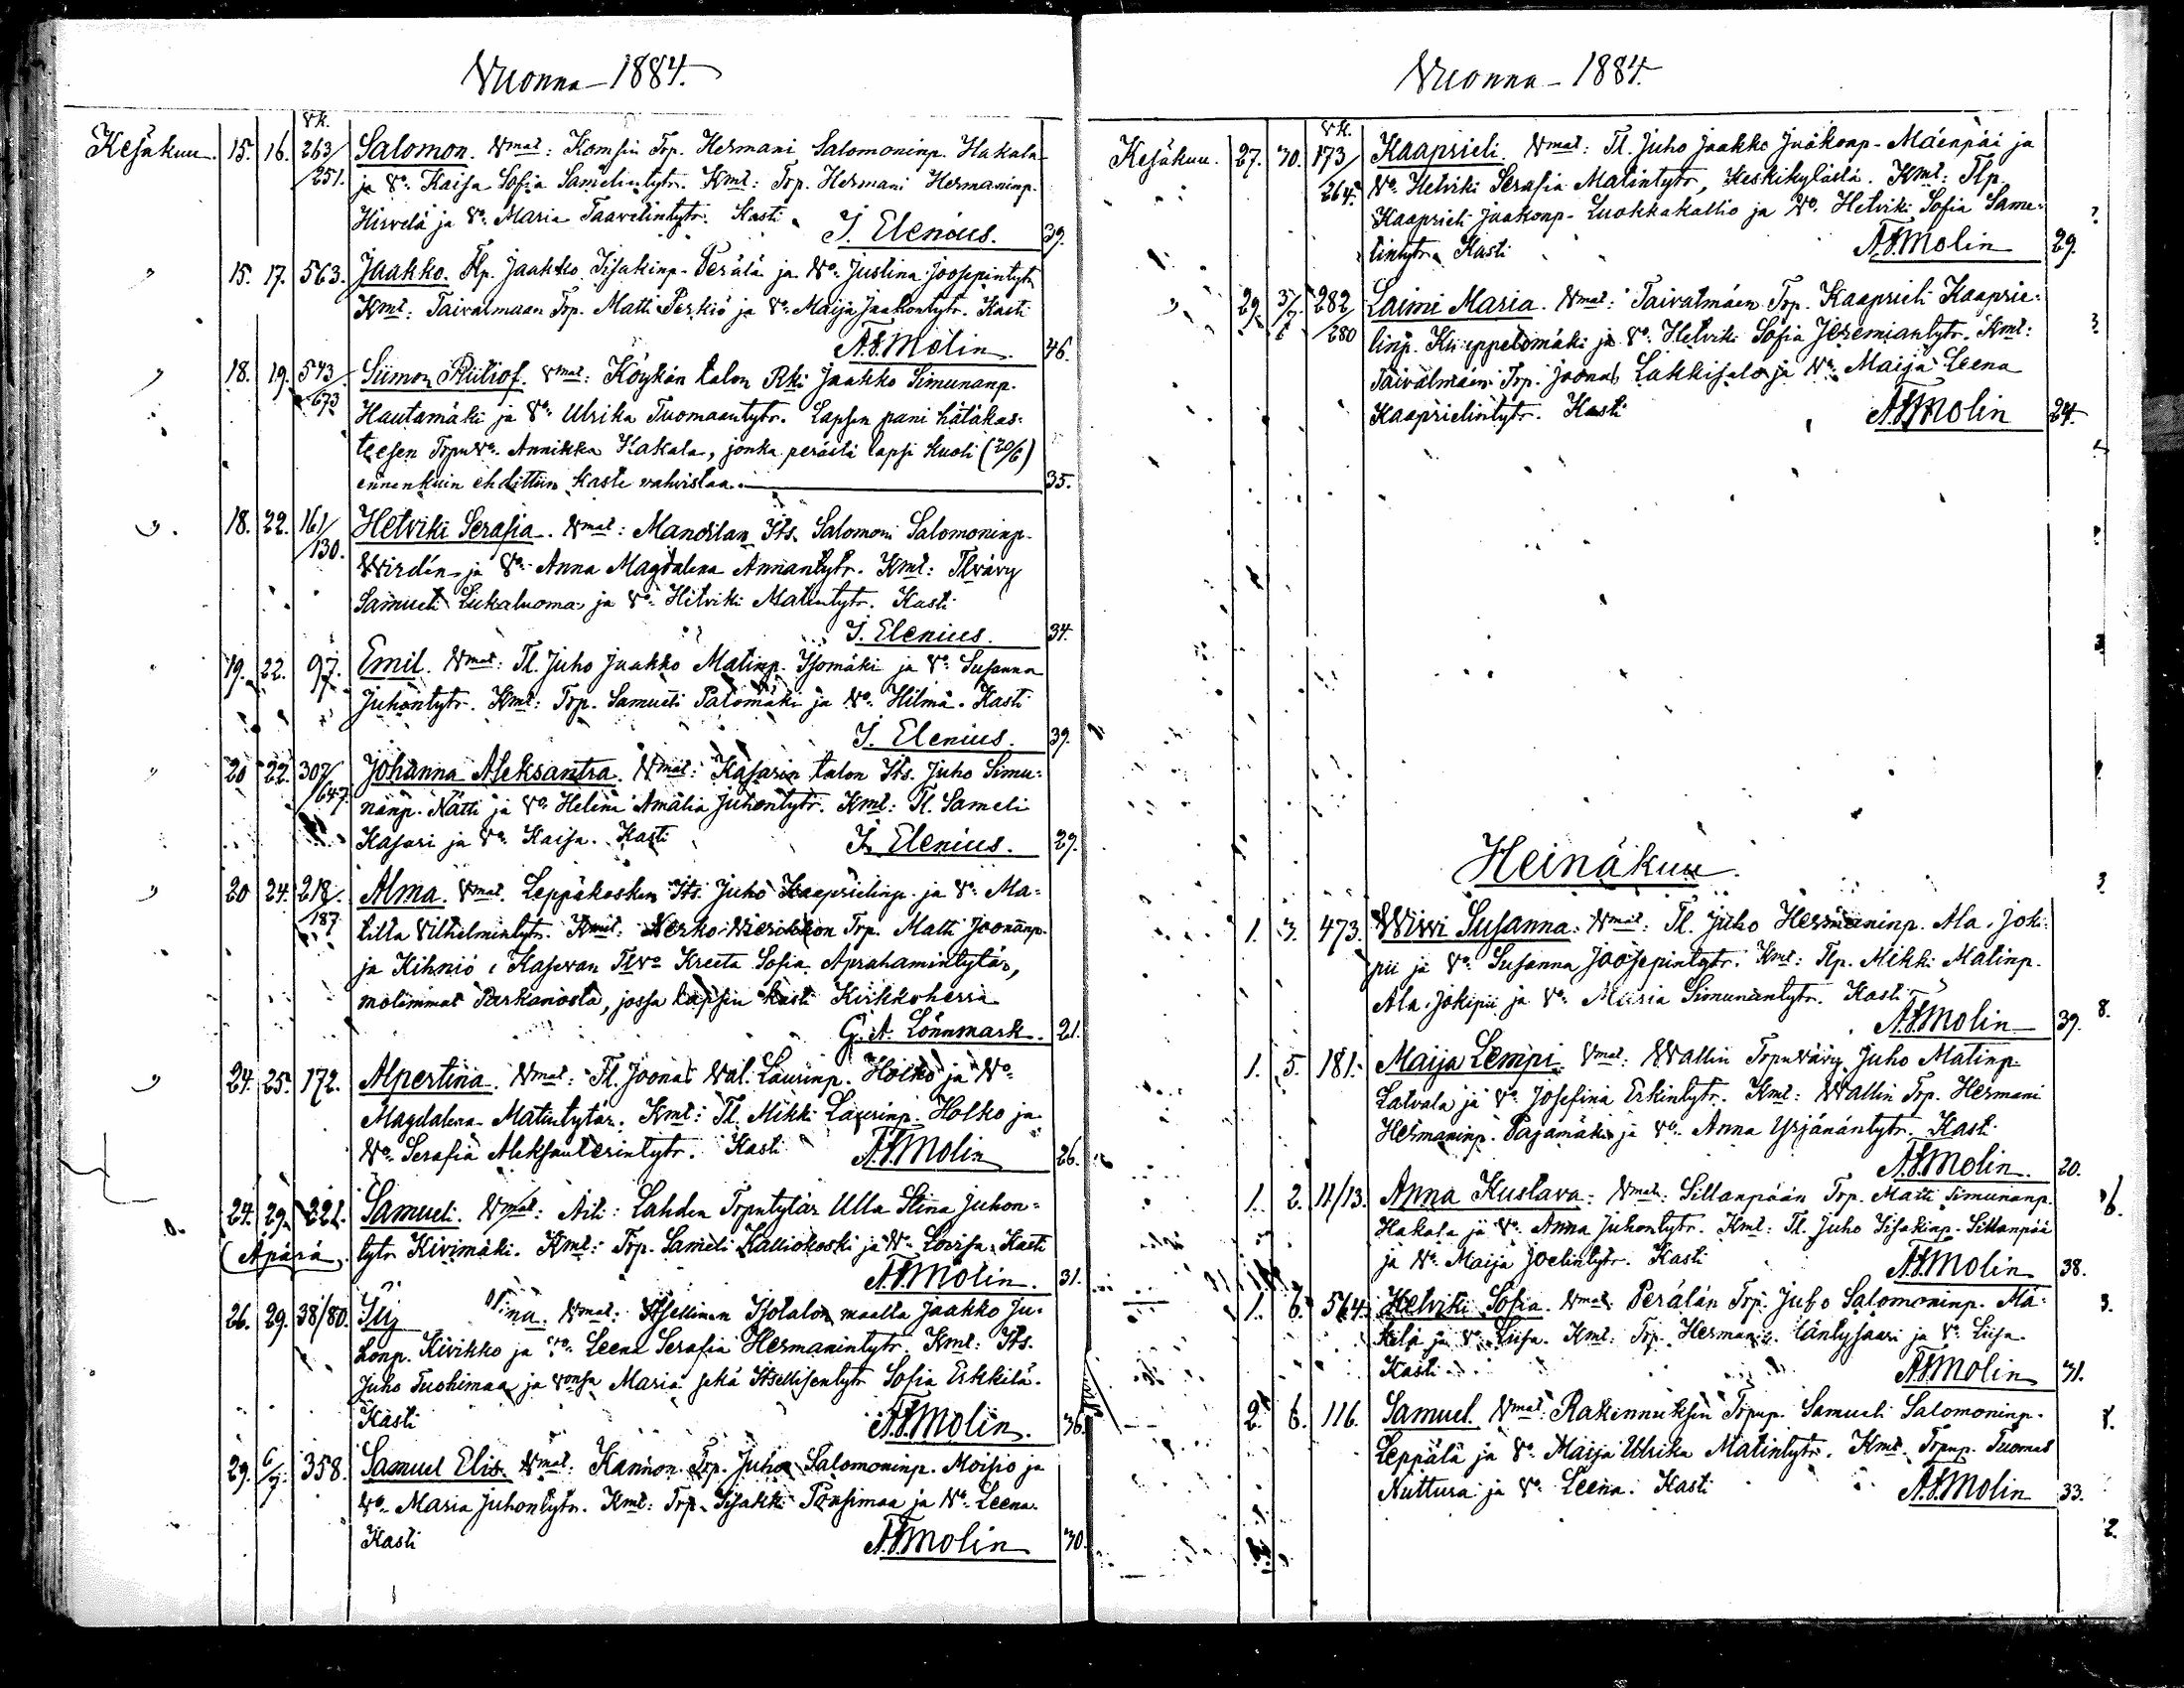 Vuonna 1884.
vk.
Kesäkuu. 15. 16. 263/251. Salomon. Vmat: Komsin Trp. Hermani Salomoninp. Hakala
ja Vo. Kaisa Sofia Samelintytr. Kmt: Trp. Hermani Hermaninp.
Hirvelä ja Vo. Maria Taavetintytr. Kasti J. Elenius. 39.
" 15. 17. 563. Jaakko. Tlp. Jaakko Iisakinp. Perälä ja Vo. Justina Joosepintytr
Kmt: Taivalmaan Trp. Matti Perkiö ja Vo. Maija Jaakontytr. Kasti
A.F. Molin. 46.
" 18. 19. 543/673 Siimon Riitiof. Vmat: Köykän talon Rki Jaakko Simunanp.
Hautamäki ja Vo. Ulrika Tuomaantytr. Lapsen pani hätäkas=
teesen Trpn Vo. Annikka Kakala, jonka perästä lapsi kuoli (20/6)
ennenkuin ehdittiin kaste vahvistaa. 35.
" 18. 22. 161/130. Helviki Serafia. Vmat: Mandilan Its. Salomoni Salomoninp.
Wirdén ja Vo. Anna Magdalena Annantytr. Kmt: Tlvävy
Samueli Liukaluoma ja Vo. Hilviki Matintytr. Kasti
J. Elenius. 34.
19. 22. 97. Emil. Vmat: Tl. Juho Jaakko Matinp. Isomäki ja Vo. Susanna
Juhontytr. Kmt: Trp. Samueli Palomäki ja Vo. Hilma. Kasti
J. Elenius. 39.
" 20 22. 307/647. Johanna Aleksantra. Vmat: Kasarin talon Its. Juho Simu=
nanp. Nätti ja Vo. Helina Amalia Juhontytr. Kmt: Tl. Sameli
Kasari ja Vo. Kaisa. Kasti J. Elenius. 29.
" 20 24. 218/187 Alma. Vmat. Leppäkosken Its. Juho Kaaprielinp. ja Vo. Ma=
tilta Vilhelmintytr. Kmt: Trp. Matti Joonanp.
ja Kihniö Kasevan Tlvo Kreeta Sofia Aprahamintytär,
molemmat Parkanosta, jossa lapsen kasti Kirkkoherra
G. A. Lönnmark. 21.
" 24. 25. 172. Alpertina. Vmat: Tl. Joonas Val. Laurinp. Holko ja Vo.
Magdalena Matintytär. Kmt: Tl. Mikki Laurinp. Holko ja
Vo. Serafia Aleksanterintytr. Kasti A.F. Molin 26.
24. 29. 221. Samueli. Vmat: Äiti: Lahden Trpntytär Ulla Stina Juhon=
(Äpärä. tytr Kivimäki. Kmt: Trp. Sameli Kalliokoski ja Vo. Lovisa. Kasti
A.F. Molin. 31.
26. 29. 38/80. Vmat: Itsellinen Isotalon maalla Jaakko Ju=
honp. Kivikko ja Vo. Leena Serafia Hermanintytr. Kmt: Its.
Juho Tuohimaa ja vonsa Maria sekä Itsellisentytr Sofia Erkkilä.
Kasti A.F. Molin. 36.
29. 6/7. 358. Samuel Elis. Vmat: Kannon Trp. Juho Salomoninp. Moisio ja
Vo. Maria Juhontytr. Kmt: Trp. Iisakki Ponsimaa ja Vo. Leena.
Kasti A.F. Molin 30.
Vuonna 1884.
vk.
Kesäkuu. 27. 30. 173/264. Kaaprieli. Vmat: Tl. Juho Jaakko Jaakonp. Mäenpää ja
Vo. Helviki Serafia Matintytr, Keskikylästä. Kmt: Tlp.
Kaaprieli Jaakonp. Luokkakallio ja Vo. Helviki Sofia Same=
lintytr. Kasti A.F. Molin 29.
" 29. 5/7. 282/280 Laimi Maria. Vmat: Taivalmäen Trp. Kaaprieli Kaaprie=
linp. Kiieppelömäki ja Vo. Helviki Sofia Jeremiantytr. Kmt:
Taivalmäen Trp. Joonas Lakkisalo ja Vo. Maija Leena
Kaaprielintytr. Kasti A.F. Molin 24.
Heinäkuu.
1. 3. 473. Wiivi Susanna. Vmat: Tl. Juho Hermaninp. Ala-Joki=
pii ja Vo. Susanna Joosepintytr. Kmt: Tlp. Mikki Matinp.
Ala-Jokipii ja Vo. Maria Simunantytr. Kasti
A.F. Molin 39.
1. 5. 181. Maija Lempi. Vmat: Wallin Trpnvävy Juho Matinp.
Latvala ja Vo. Josefina Erkintytr. Kmt: Wallin Trp. Hermani
Hermaninp. Pajamäki ja Vo. Anna Yrjänäntytr. Kasti
A.F. Molin. 20.
1. 2. 11/13. Anna Kustava. Vmat: Sillanpään Trp. Matti Simunanp.
Hakala ja Vo. Anna Juhontytr. Kmt: Tl. Juho Iisakinp. Sillanpää
ja Vo. Maija Joelintytr. Kasti A.F. Molin 38.
1. 6. 564. Helviki Sofia. Vmat: Perälän Trp. Juho Salomoninp. Mä=
kelä ja Vo. Liisa. Kmt: Trp. Hermani Mäntysaari ja Vo. Liisa.
Kasti A.F. Molin 31.
2. 6. 116. Samuel. Vmat: Rakennuksen Trpnp. Samueli Salomoninp.
Leppälä ja Vo. Maija Ulrika Matintytr. Kmt. Trpnp. Tuomas
Nuttura ja Vo. Leena. Kasti A.F. Molin 33.